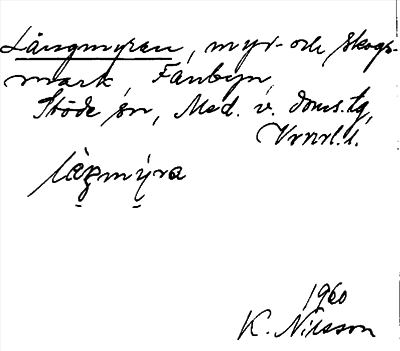 Långmyran, myr- och skogs-
mark, Fanbyn,
Stöde sn, Med. v. doms.tg,
Vrnrl. l.
1960
K. Nilsson